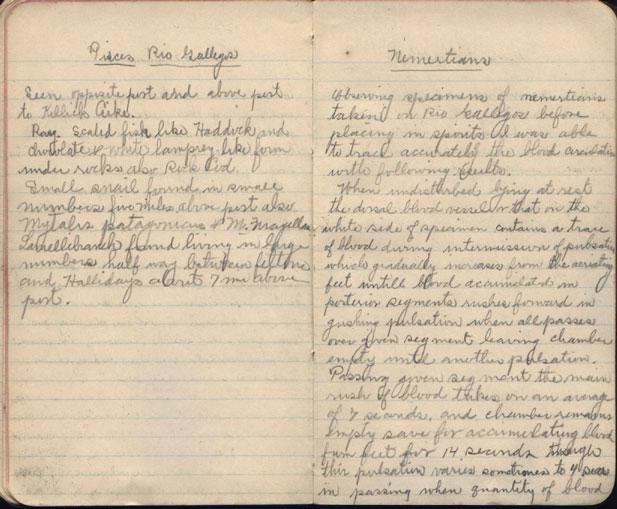 Pisces Rio Gallegos
Seen opposite port and above port
to Killik Aike.
Ray. Scaled fish like Haddock and
chocolate & white lamprey like form
under rocks also Rock Cod.
Small snail found in small
numbers five miles above port also
Mytalis patagonicus & M. Magellan
Lamellibranch found living in large
numbers half way between Feltons
and Hallidays about 7 mi above
port.
Nemertians
Observing specimens of nemertians
taken on Rio Gallegos before
placing in spirits I was able
to trace accurately the blood circulation
with following results.
When undisturbed lying at rest
the dorsal blood vessel or that on the
white side of specimen contains a trace
of blood during intermission of pulsation
which gradually increases from the aerating
feet untill blood accumulated in
posterior segments rushes forward in
gushing pulsation when all passes
over given segment leaving chamber
empty until another pulsation.
Passing given segment the main
rush of blood takes on an average
of 7 seconds, and chamber remains
empty save for accumulating blood
from feet for 14 seconds though
this pulsation varies sometimes to 4 secs
in passing when quantity of blood